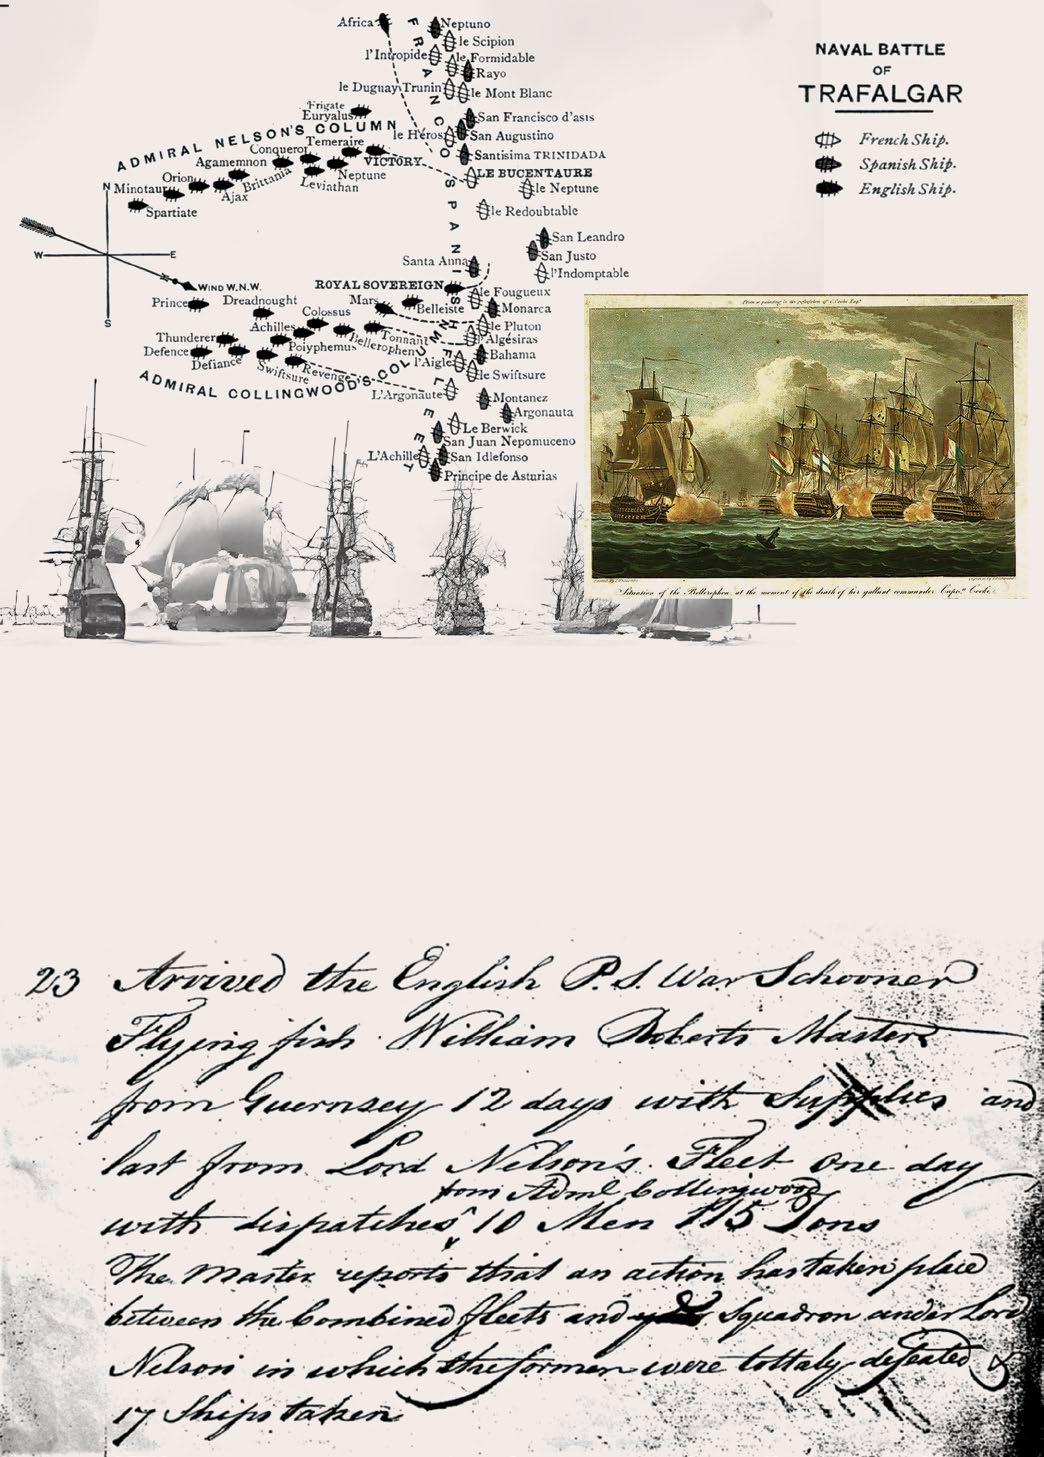 NAVAL BATTLE
OF
TRAFALGAR
French Ship.
Spanish Ship.
English Ship.
Africa
Neptuno
le Scipion
l'Intropide
le Formidable
Rayo
le Duguay Trunin
le Mont Blanc
Frigate
Euryalus
San Francisco d'asis
le Héros
San Augustino
ADMIRAL NELSON'S COLUMN
Temeraire
Conqueror
Santisima TRINIDADA
Agamemnon
VICTORY
LE BUCENTAURE
Neptune
Orion
Brittania
Leviathan
le Neptune
Minotaur
Ajax
Spartiate
le Redoubtable
FRANCO SPANISH FLEET
N
W
E
S
WIND W.N.W.
San Leandro
San Justo
Santa Anna
l'Indomptable
ROYAL SOVEREIGN
le Fougueux
Prince
Dreadnought
Mars
Belleiste
Monarca
Colossus
Achilles
Tonnant
le Pluton
Thunderer
Polyphemus
Bellerophen
Algésiras
Defence
Defiance
l'Aigle
Bahama
Swiftsure
Revenge
le Swiftsure
ADMIRAL COLLINGWOOD'S COLUMN
L'Argonaute
Montanez
Argonauta
Le Berwick
San Juan Nepomuceno
L'Achille
San Idlefonso
Principe de Asturias
From a painting in the possession of C. Cooke Esqr.
Situation of the Bellerophon, at the moment of the death of her gallant commander Captn. Cooke.
23 Arrived the English P.S. War Schooner
Flying fish William Roberts Master
from Guernsey 12 days with Supplies and
last from Lord Nelson's Fleet one day
from Adml Collingwood
with dispatches 10 Men 115 Tons
The Master reports that an action has taken place
between the Combined fleets and Squadron under Lord
Nelson in which the former were tottaly defeated &
17 Ships taken